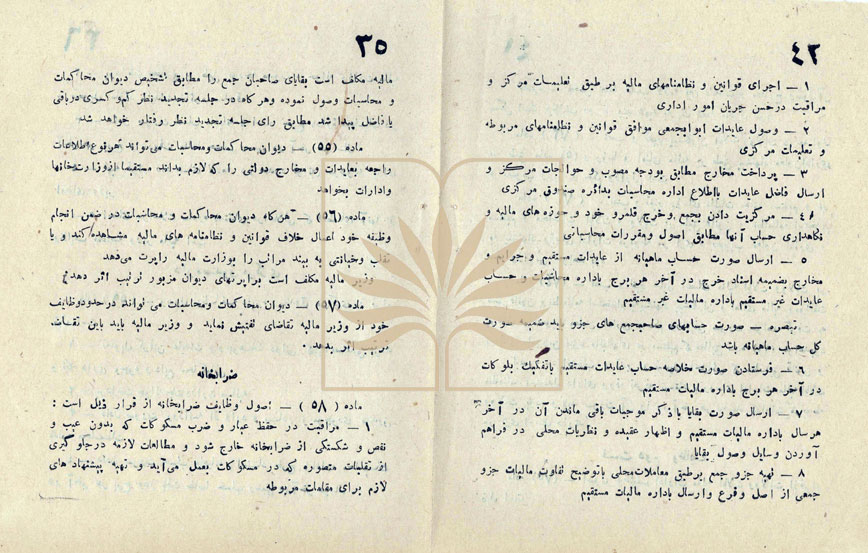 ۴۲
۱ — اجرای قوانین و نظامنامهای مالیه بر طبق تعلیمات مرکز و
مراقبت در حسن جریان امور اداری
۲ — وصول عایدات ابوابجمعی موافق قوانین و نظامنامهای مربوطه
و تعلیمات مرکزی
۳ — پرداخت مخارج مطابق بودجه مصوب و حوالجات مرکز و
ارسال فاضل عایدات بااطلاع اداره محاسبات بدائره صندوق مرکزی
۴ — مرکزیت دادن بجمع وخرج قلمرو خود و حوزه های مالیه و
نگاهداری حساب آنها مطابق اصول ومقررات محاسباتی
۵ — ارسال صورت حساب ماهیانه از عایدات مستقیم و جرایم و
مخارج بضمیمه اسناد خرج در آخر هر برج باداره محاسبات و حساب
عایدات غیر مستقیم باداره مالیات غیر مستقیم
تبصره — صورت حسابهای صاحبجمع های جزو باید ضمیمه صورت
کل حساب ماهیانه باشد
۶ — فرستادن صورت خلاصه حساب عایدات مستقیم باتفکیك بلوکات
در آخر هر برج باداره مالیات مستقیم
۷ — ارسال صورت بقایا باذکر موجبات باقی ماندن آن در آخر
هرسال باداره مالیات مستقیم و اظهار عقیده و نظریات محلی در فراهم
آوردن وسایل وصول بقایا
۸ — تهیه جزو جمع برطبق معاملات محلی باتوضیح تفاوت مالیات جزو
جمعی از اصل وفرع وارسال باداره مالیات مستقیم
۳۵
مالیه مکلف است بقایای صاحبان جمع را مطابق تشخیص دیوان محاکمات
و محاسبات وصول نموده وهرکاه در جلسه تجدید نظر کم و کسری دریافتی
یا فاضل پیدا شد مطابق رای جلسه تجدید نظر رفتار خواهد شد
ماده (۵۵) — دیوان محاکمات ومحاسبات می تواند هر نوع اطلاعات
راجعه بعایدات و مخارج دولتی را، که لازم بداند مستقیما از وزارتخانها
وادارات بخواهد
ماده (۵۶) — هرکاه دیوان محاکمات و محاسبات در ضمن انجام
وظیفه خود اعمال خلاف قوانین و نظامنامه های مالیه مشاهده کند و یا
تقلب وخیانتی به بیند مراتب را بوزارت مالیه راپرت می‌دهد
وزیر مالیه مکلف است براپرتهای دیوان مزبور ترتیب اثر دهد
ماده (۵۷) — دیوان محاکمات ومحاسبات می تواند درحدود وظایف
خود از وزیر مالیه تقاضای تفتیش نماید و وزیر مالیه باید باین تقاضا
ترتیب اثر بدهد .
ضرابخانه
ماده (۵۸) — اصول وظایف ضرابخانه از قرار ذیل است :
۱ — مراقبت در حفظ عیار و ضرب مسکوکات که بدون عیب و
نقص و شکستگی از ضرابخانه خارج شود و مطالعات لازمه درجلوگیری
از تقلبات متصوره که در مسکوکات بعمل می‌آید و تهیه پیشنهادهای
لازم برای مقامات مربوطه